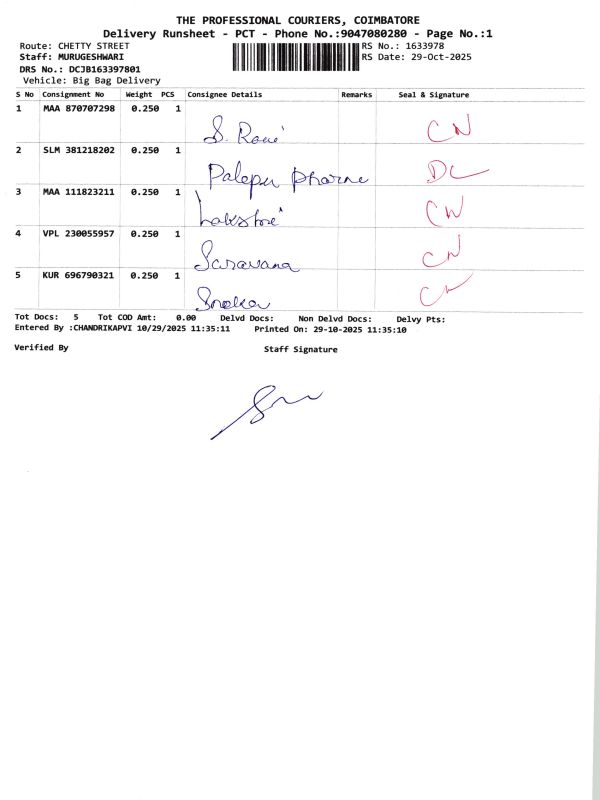 THE PROFESSIONAL COURIERS, COIMBATORE
Delivery Runsheet - PCT - Phone No.:9047080280 - Page No.:1
Route: CHETTY STREET RS No.: 1633978
Staff: MURUGESHWARI RS Date: 29-Oct-2025
DRS No.: DCJB163397801
Vehicle: Big Bag Delivery
S No Consignment No Weight PCS Consignee Details Remarks Seal & Signature
1 MAA 870707298 0.250 1
S. Rani CN
2 SLM 381218202 0.250 1
Palepu Pharma DC
3 MAA 111823211 0.250 1
CN
4 VPL 230055957 0.250 1
Saravana CN
5 KUR 696790321 0.250 1
CN
Tot Docs: 5 Tot COD Amt: 0.00 Delvd Docs: Non Delvd Docs: Delvy Pts:
Entered By :CHANDRIKAPVI 10/29/2025 11:35:11 Printed On: 29-10-2025 11:35:10
Verified By Staff Signature